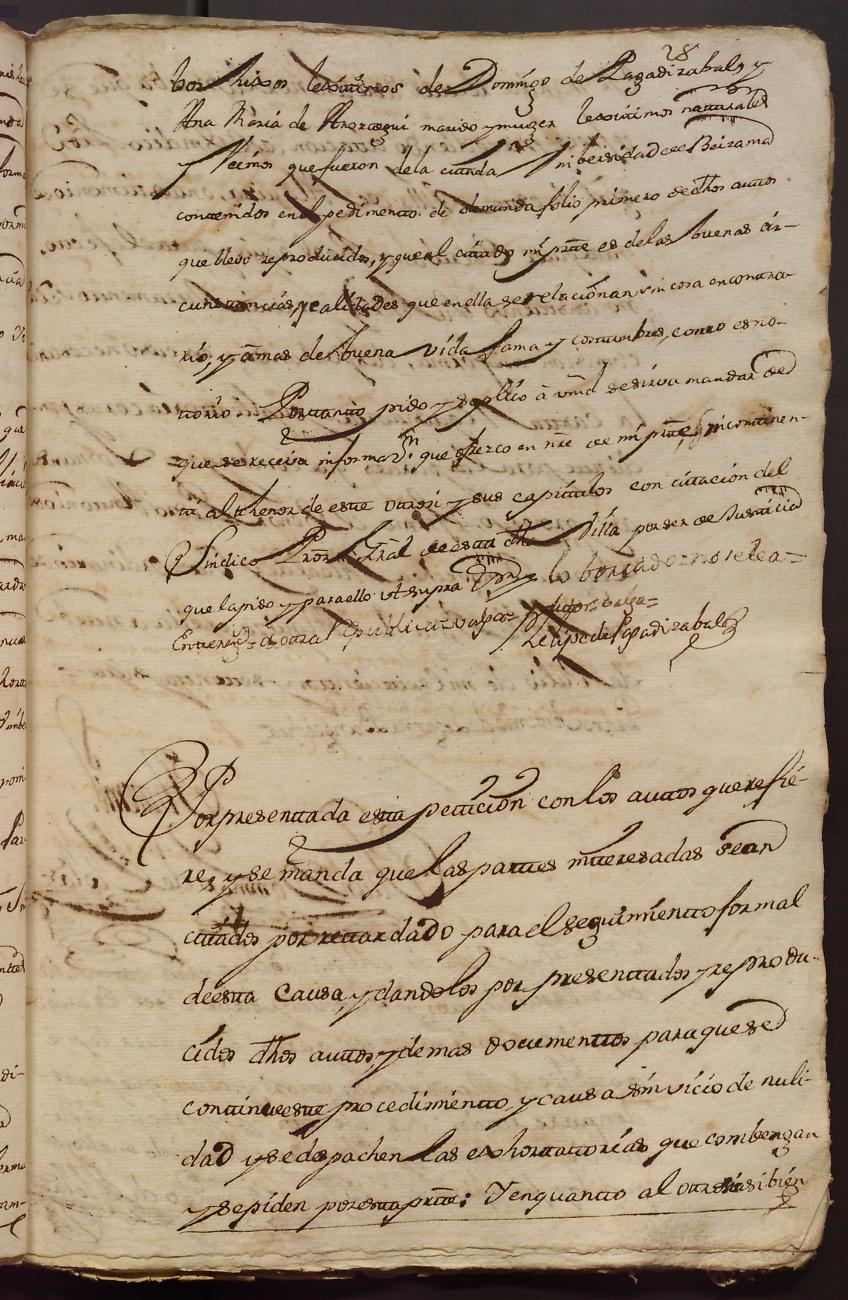 28
bos hixos lexitimos de Domingo de Pagadizabal, y
Ana Maria de Areztegui marido y muger lexitimos naturales
y Vecinos que fueron dela citada Vnibersidad de Beizama
contenidos en el pedimento de demanda folio primero de dhos autos
que llebo reproducidos, y que el citado mi parte es delas buenas cir-
cunstancias y calidades que en ella se relacionan sin cosa en contra-
rio, y ámas de buena vida fama y costumbres, como es no-
torio. Portanto pido y suplico à vmd se sirva mandar
que se reciva informazn. que ofrezco en nre de mi parte, incontinen-
ti al thenor de este otrosi y sus capitulos con citación del
Síndico Pror. Gral de esta dha Villa por ser de Justicia
que la pido y para ello vt supra lo borrado = no se lea =
Entrereng. = dotral publica = valga =
Felipe de Pagadizabal
Por presentada esta petición con los autos que refie-
re, y se manda que las partes interesadas sean
citados por retardado para el seguimiento formal
de esta causa, y dandolos por presentados y reprodu-
cidos dhos autos y demas documentos para que se
continue este procedimiento, y causa sin vicio de nuli-
dad y se despachen las exhortatorias que combengan
y se piden por esta parte: Y en quanto al otrosi si bien